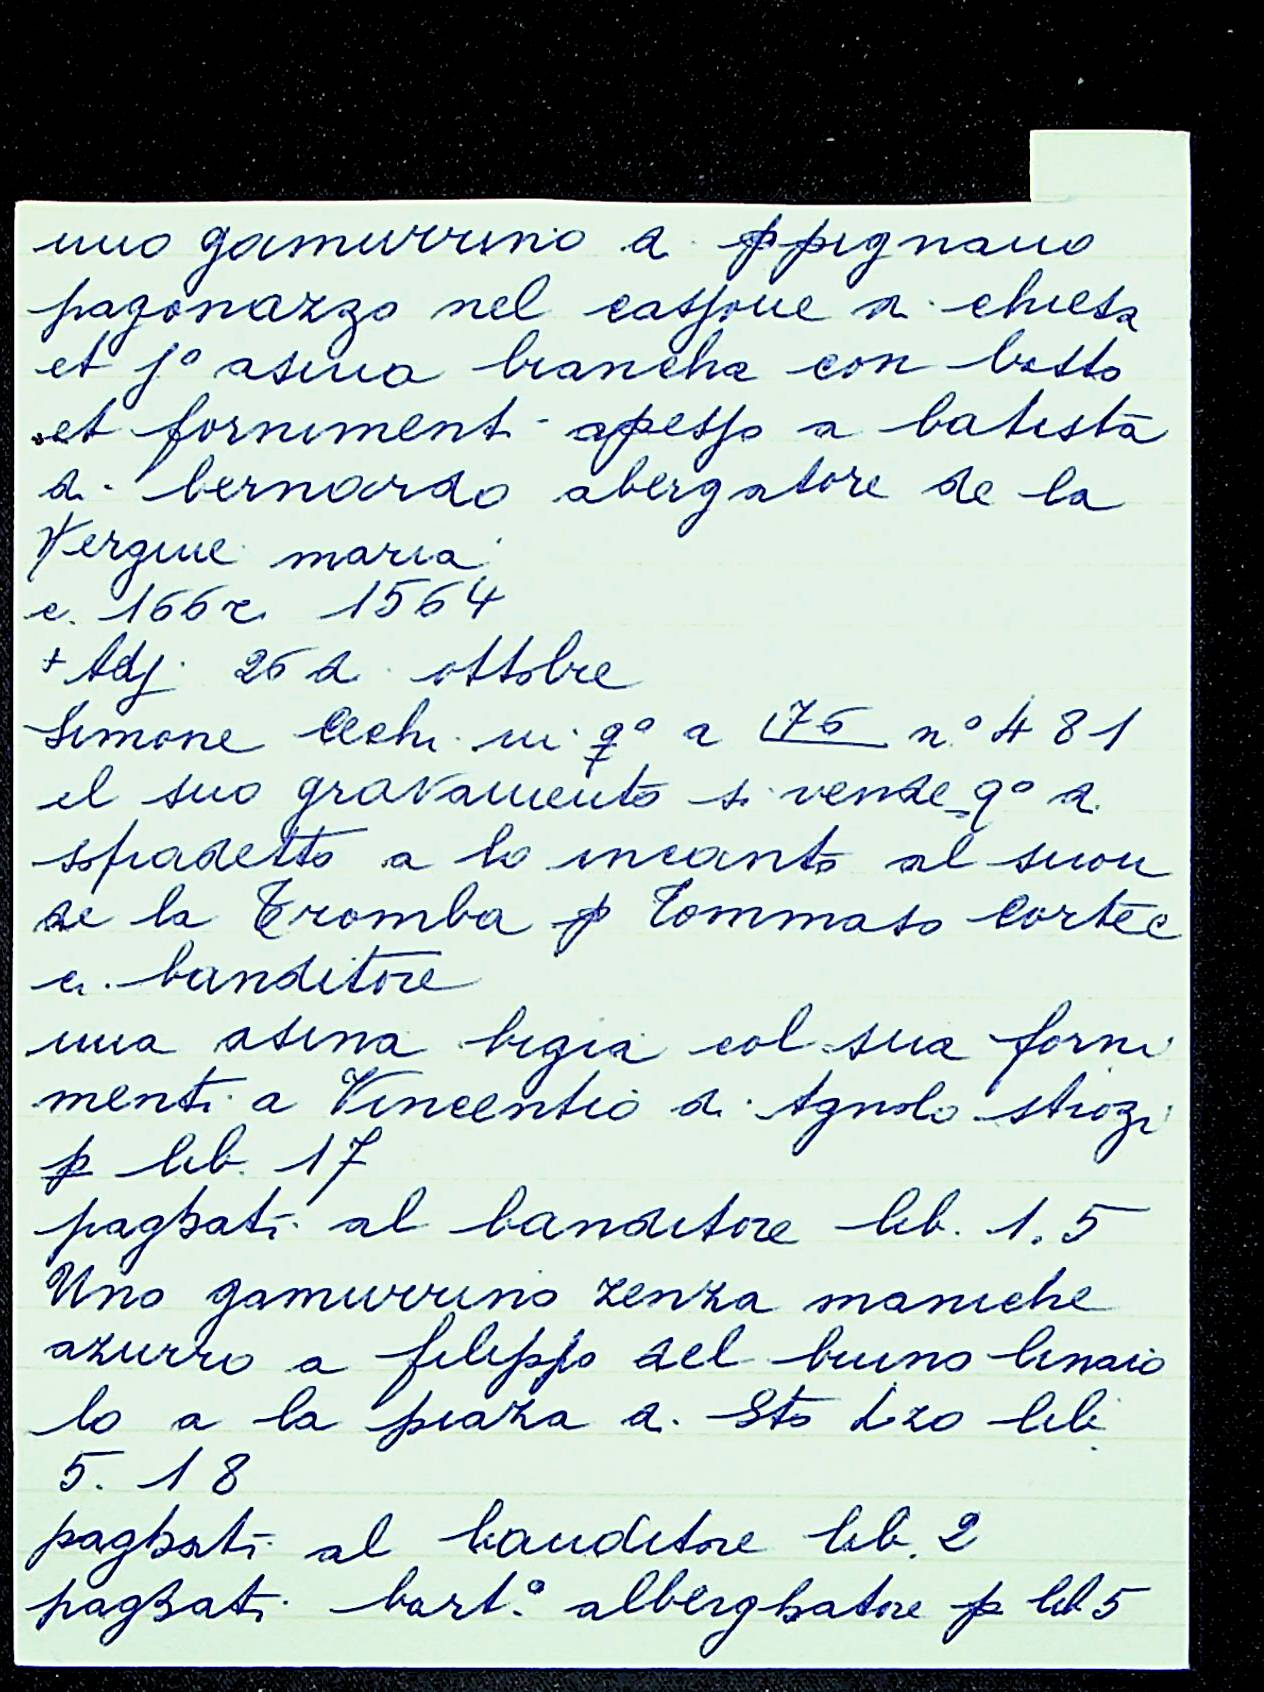 uno gamurrino di ppignano
pagonazzo nel cassone di chiesa
et jº asina biancha con basto
et fornimenti apesso a batista
di bernardo abergatore de la
Vergine maria
c. 166 r. 1564
+ Adj 26 di ottobre
Simone Cechi in qº a 176 nº 481
el suo gravamento si vende qº di
sopradetto a lo incanto al suon
de la Tromba p Tommaso Cortec
ci banditore
una asina bigia col sua forni
menti a Vincentio di Agnolo strozi
p lib. 17
paghati al banditore lib. 1.5
Uno gamurrino zenza maniche
azurro a filippo del buino linaio
lo a la piaza di Sto Lzo lib
5. 18
paghati al banditore lib. 2
paghati bart.º alberghatore p lib 5